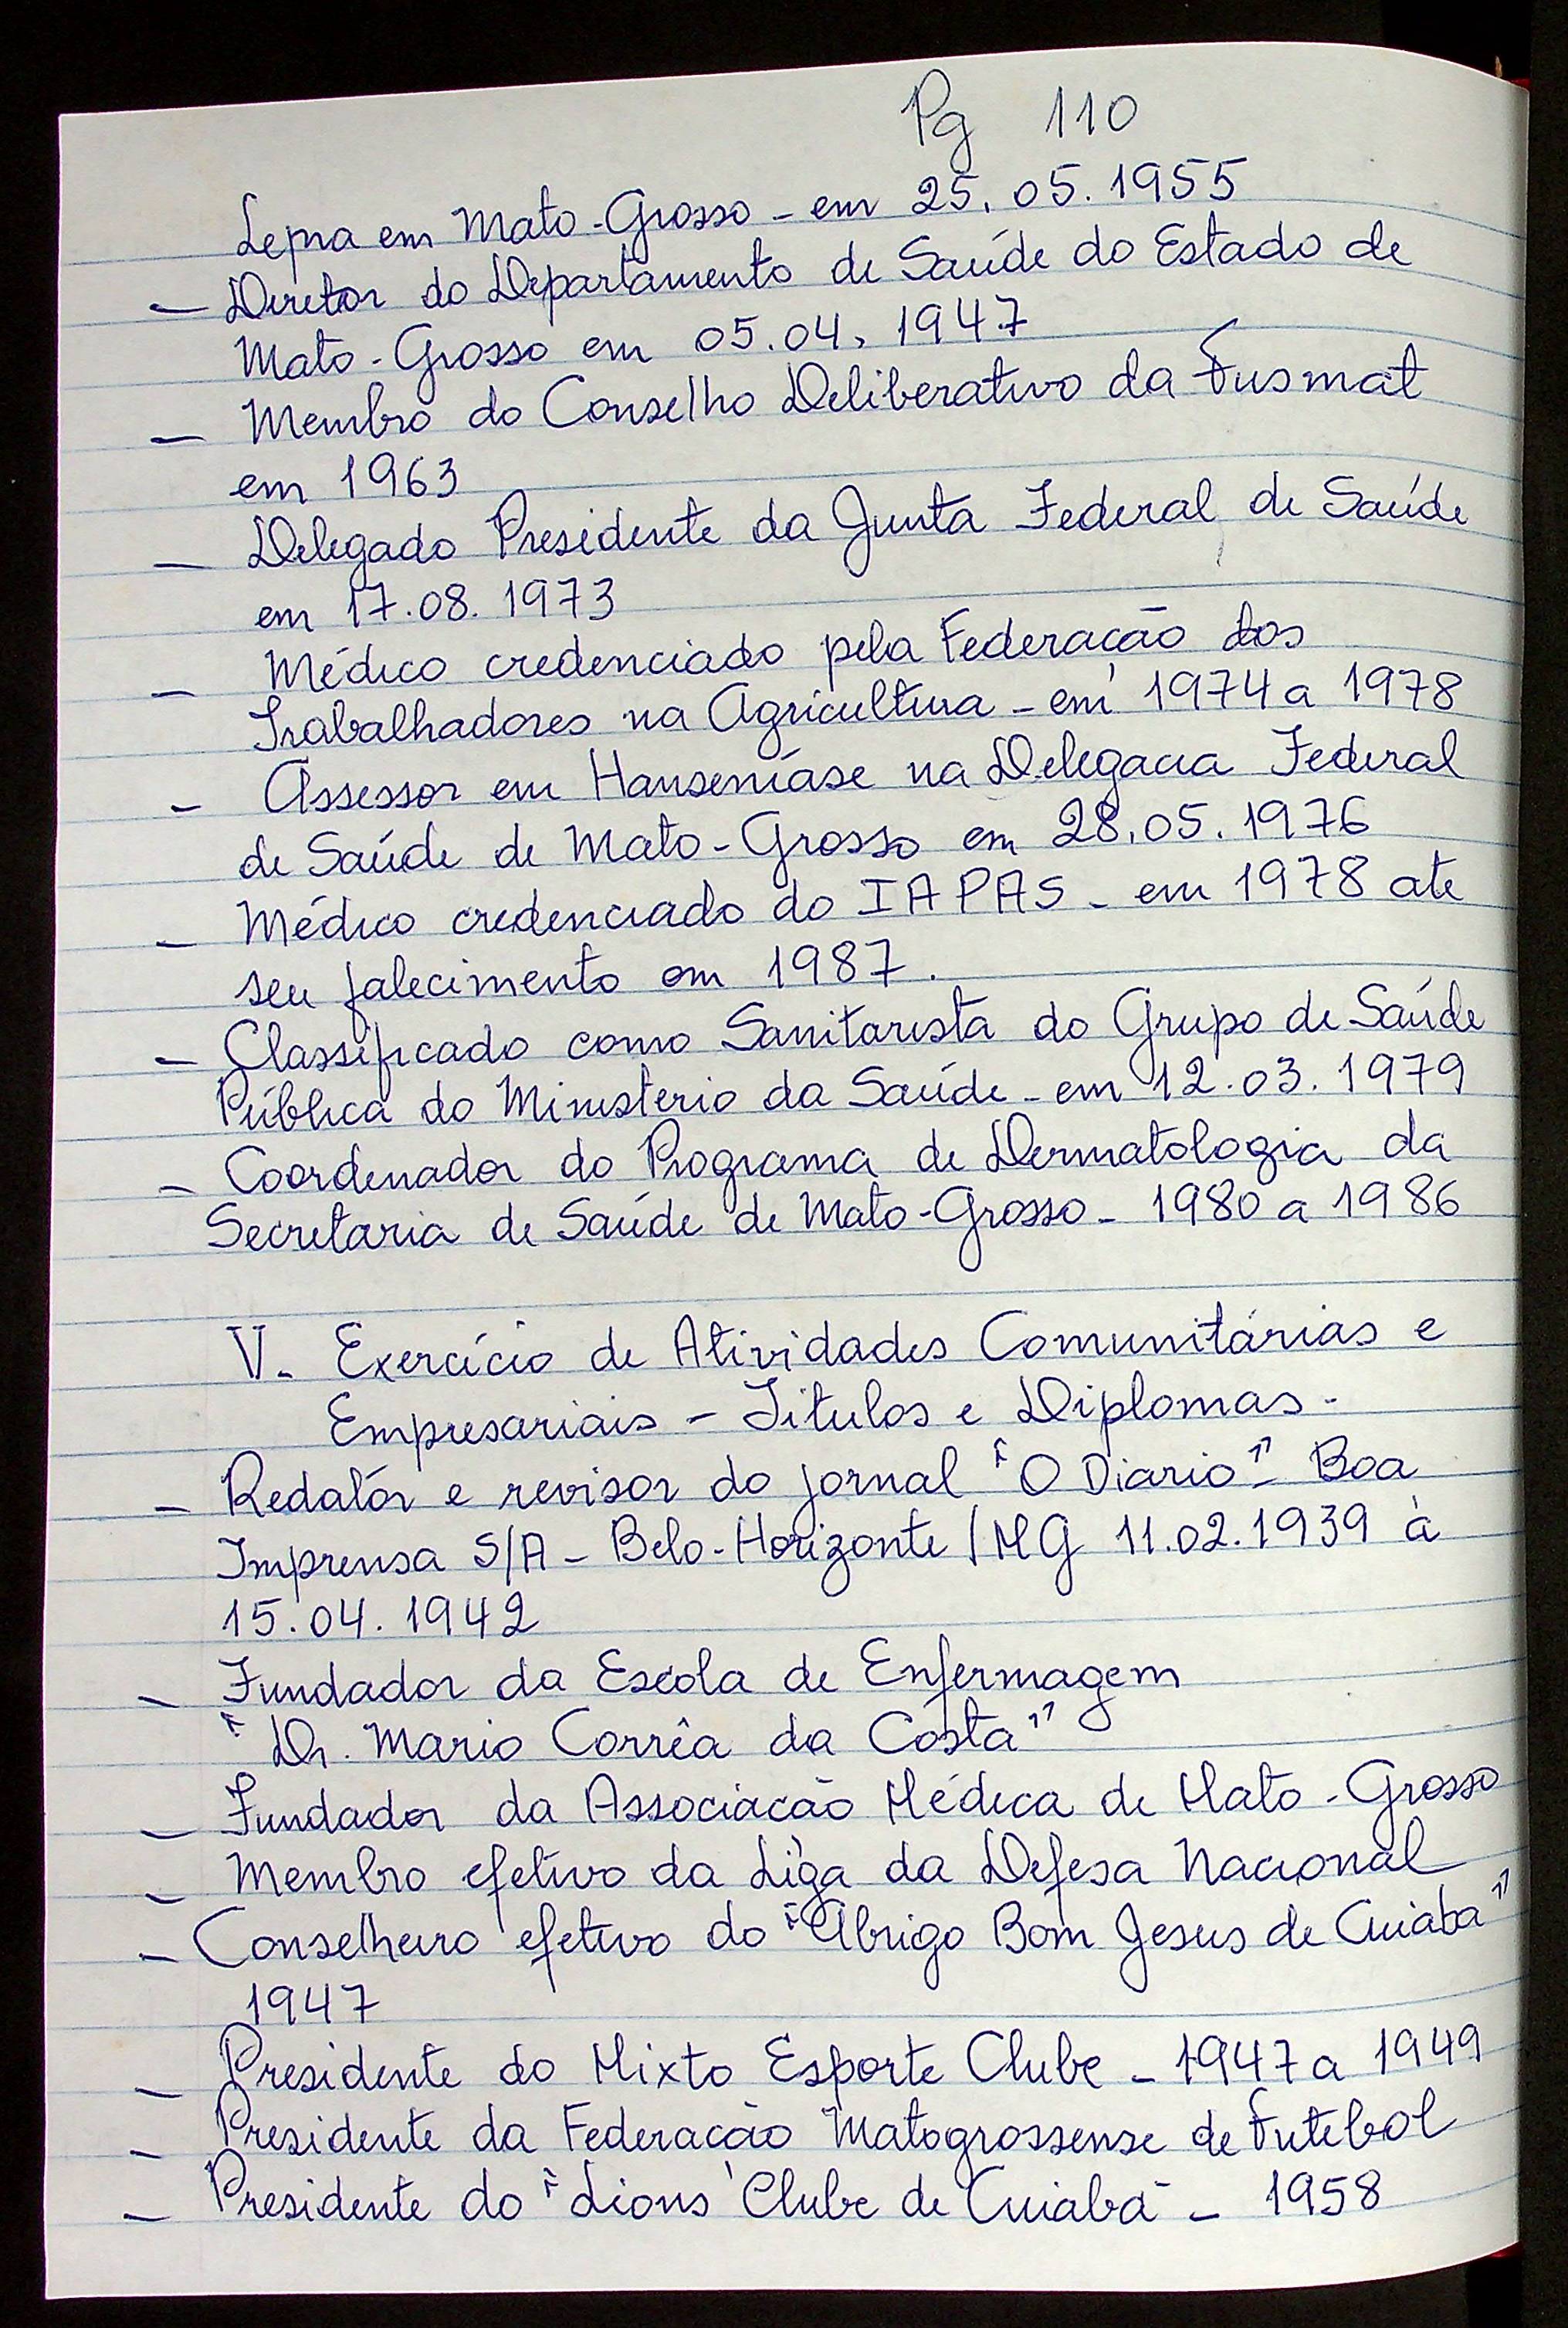 Pg 110
Lepra em Mato-Grosso - em 25.05.1955
- Diretor do Departamento de Saúde do Estado de
Mato-Grosso em 05.04.1947
- Membro do Conselho Deliberativo da Fusmat
em 1963
- Delegado Presidente da Junta Federal de Saúde
em 17.08.1973
- Médico credenciado pela Federacão dos
Trabalhadores na Agricultura - em 1974 a 1978
- Assessor em Hanseníase na Delegacia Federal
de Saúde de Mato-Grosso em 28.05.1976
- Médico credenciado do IAPAS - em 1978 ate
seu falecimento em 1987.
- Classificado como Sanitarista do Grupo de Saúde
Pública do Ministério da Saúde - em 12.03.1979
- Coordenador do Programa de Dermatologia da
Secretaria de Saúde de Mato-Grosso - 1980 a 1986
V. Exercício de Atividades Comunitárias e
Empresariais - Titulos e Diplomas -
- Redatór e revisor do jornal "O Diario" - Boa
Imprensa S/A - Belo-Horizonte/MG 11.02.1939 à
15.04.1942
- Fundador da Escola de Enfermagem
"Dr. Mario Corrêa da Costa"
- Fundador da Associacão Médica de Mato-Grosso
- Membro efetivo da Liga da Defesa Nacional
- Conselheiro efetivo do "Abrigo Bom Jesus de Cuiaba"
1947
- Presidente do Mixto Esporte Clube - 1947 a 1949
- Presidente da Federacão Matogrossense de Futebol
- Presidente do "Lions Clube de Cuiabá - 1958